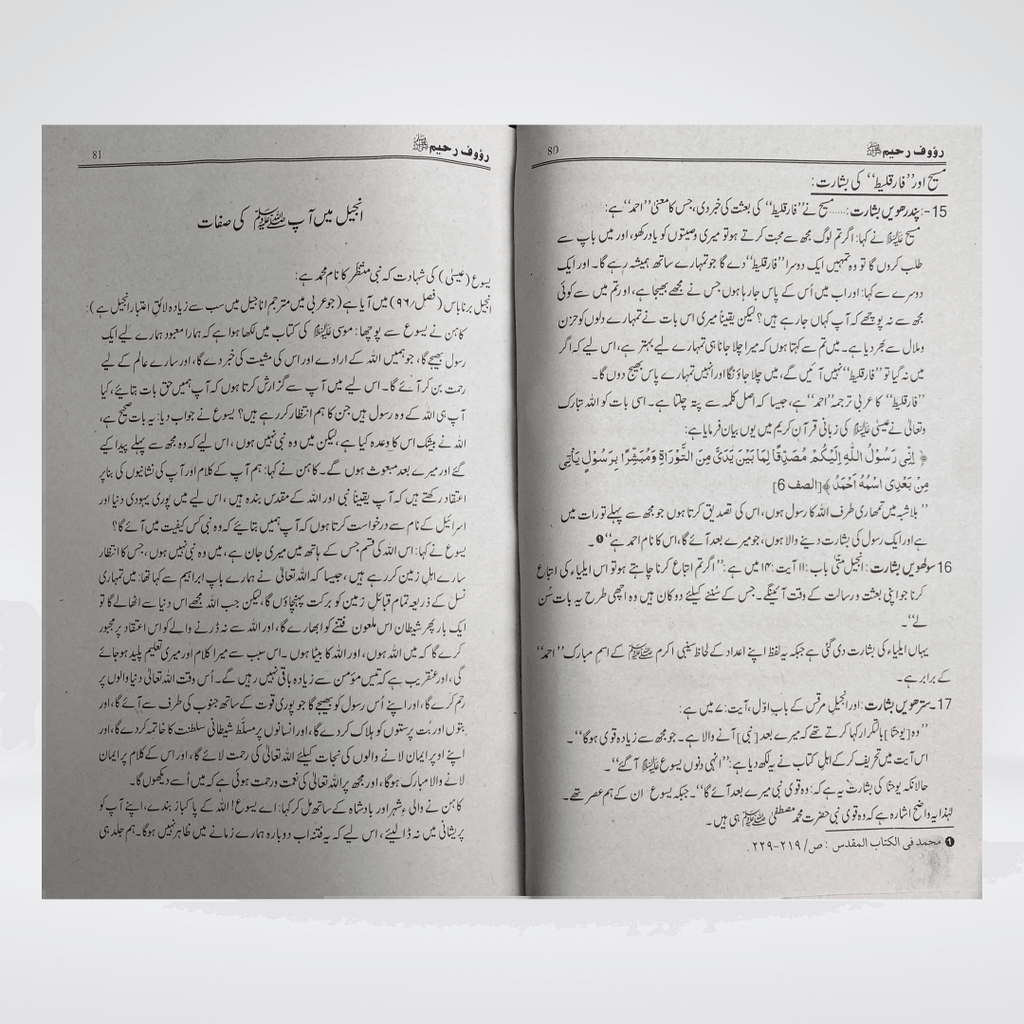 رؤوف رحیم ﷺ 80
مسیح اور ’’فارقلیط‘‘ کی بشارت:
15-: پندرھویں بشارت: ..... مسیح نے ’’فارقلیط‘‘ کی بعثت کی خبر دی، جس کا معنیٰ ’’احمد‘‘ ہے:
مسیح علیہ السلام نے کہا: اگر تم لوگ مجھ سے محبت کرتے ہو تو میری وصیتوں کو یاد رکھو، اور میں باپ سے
طلب کروں گا تو وہ تمہیں ایک دوسرا ’’فارقلیط‘‘ دے گا جو تمہارے ساتھ ہمیشہ رہے گا۔ اور ایک
دوسرے سے کہا: اور اب میں اُس کے پاس جا رہا ہوں جس نے مجھے بھیجا ہے، اور تم میں سے کوئی
مجھ سے نہ پوچھے کہ آپ کہاں جا رہے ہیں؟ لیکن یقیناً میری اس بات نے تمہارے دلوں کو حزن
و ملال سے بھر دیا ہے۔ میں تم سے کہتا ہوں کہ میرا چلا جانا ہی تمہارے لیے بہتر ہے، اس لیے کہ اگر
میں نہ گیا تو ’’فارقلیط‘‘ نہیں آئیں گے، میں چلا جاؤنگا اور انہیں تمہارے پاس بھیج دوں گا۔
’’فارقلیط‘‘ کا عربی ترجمہ ’’احمد‘‘ ہے، جیسا کہ اصل کلمہ سے پتہ چلتا ہے۔ اسی بات کو اللہ تبارک
وتعالیٰ نے عیسیٰ علیہ السلام کی زبانی قرآن کریم میں یوں بیان فرمایا ہے:
﴿ اِنِّی رَسُوْلُ اللّٰهِ اِلَیْكُمْ مُصَدِّقًا لِمَا بَیْنَ یَدَیَّ مِنَ التَّوْرَاةِ وَمُبَشِّرًا بِرَسُوْلٍ یَأْتِی
مِنْ بَعْدِی اسْمُهُ اَحْمَدُ ﴾ [الصف 6]
’’بلاشبہ میں تمھاری طرف اللہ کا رسول ہوں، اس کی تصدیق کرتا ہوں جو مجھ سے پہلے تورات میں
ہے اور ایک رسول کی بشارت دینے والا ہوں، جو میرے بعد آئے گا، اس کا نام احمد ہے‘‘ ❶ ۔
16 سولھویں بشارت: انجیل متّی باب: ۱۱ آیت: ۱۴ میں ہے: ’’اگر تم اتباع کرنا چاہتے ہو تو اس ایلیاء کی اتباع
کرنا جو اپنی بعثت و رسالت کے وقت آئینگے۔ جس کے سُننے کیلئے دو کان ہیں وہ اچھی طرح یہ بات سُن
لے‘‘۔
یہاں ایلیاء کی بشارت دی گئی ہے جبکہ یہ لفظ اپنے اعداد کے لحاظ سے نبی اکرم ﷺ کے اسم مبارک ’’احمد‘‘
کے برابر ہے۔
17۔ سترھویں بشارت: اور انجیل مرقس کے باب اوّل، آیت: ۷ میں ہے:
’’وہ [یوحنا] بالتکرار کہا کرتے تھے کہ میرے بعد [نبی] آنے والا ہے۔ جو مجھ سے زیادہ قوی ہوگا‘‘۔
اس آیت میں تحریف کر کے اہلِ کتاب نے یہ لکھ دیا ہے: ’’انہی دنوں یسوع علیہ السلام آ گئے‘‘۔
حالانکہ یوحنا کی بشارت یہ ہے کہ: وہ قوی نبی میرے بعد آئے گا‘‘۔ جبکہ یسوع ان کے ہم عصر تھے۔
لہٰذا یہ واضح اشارہ ہے کہ وہ قوی نبی حضرت محمد مصطفیٰ ﷺ ہی ہیں۔
❶ محمد فی الکتاب المقدس : ص/ ۲۱۹-۲۲۹ ۔
رؤوف رحیم ﷺ 81
انجیل میں آپ ﷺ کی صفات
یسوع (عیسیٰ) کی شہادت کہ نبی منتظر کا نام محمد ہے:
انجیل برناباس (فصل/۹۶) میں آیا ہے (جو عربی میں مترجم اناجیل میں سب سے زیادہ لائقِ اعتبار انجیل ہے):
کاہن نے یسوع سے پوچھا: موسیٰ علیہ السلام کی کتاب میں لکھا ہوا ہے کہ ہمارا معبود ہمارے لیے ایک
رسول بھیجے گا، جو ہمیں اللہ کے ارادے اور اس کی مشیت کی خبر دے گا، اور سارے عالم کے لیے
رحمت بن کر آئے گا۔ اس لیے میں آپ سے گزارش کرتا ہوں کہ آپ ہمیں حق بات بتائیے، کیا
آپ ہی اللہ کے وہ رسول ہیں جن کا ہم انتظار کر رہے ہیں؟ یسوع نے جواب دیا: یہ بات صحیح ہے،
اللہ نے بیشک اس کا وعدہ کیا ہے، لیکن میں وہ نبی نہیں ہوں، اس لیے کہ وہ مجھ سے پہلے پیدا کیے
گئے اور میرے بعد مبعوث ہوں گے۔ کاہن نے کہا: ہم آپ کے کلام اور آپ کی نشانیوں کی بنا پر
اعتقاد رکھتے ہیں کہ آپ یقیناً نبی اور اللہ کے مقدس بندہ ہیں، اس لیے میں پوری یہودی دنیا اور
اسرائیل کے نام سے درخواست کرتا ہوں کہ آپ ہمیں بتائیے کہ وہ نبی کس کیفیت میں آئے گا؟
یسوع نے کہا: اس اللہ کی قسم جس کے ہاتھ میں میری جان ہے، میں وہ نبی نہیں ہوں، جس کا انتظار
سارے اہلِ زمین کر رہے ہیں، جیسا کہ اللہ تعالیٰ نے ہمارے باپ ابراہیم سے کہا تھا: میں تمہاری
نسل کے ذریعہ تمام قبائلِ زمین کو برکت پہنچاؤں گا، لیکن جب اللہ مجھے اس دنیا سے اٹھا لے گا تو
ایک بار پھر شیطان اس ملعون فتنے کو ابھارے گا، اور اللہ سے نہ ڈرنے والے کو اس اعتقاد پر مجبور
کرے گا کہ میں اللہ ہوں، اور اللہ کا بیٹا ہوں۔ اس سبب سے میرا کلام اور میری تعلیم پلید ہو جائے
گی، اور عنقریب ہے کہ تیس مؤمن سے زیادہ باقی نہیں رہیں گے۔ اُس وقت اللہ تعالیٰ دنیا والوں پر
رحم کرے گا، اور اپنے اُس رسول کو بھیجے گا جو پوری قوت کے ساتھ جنوب کی طرف سے آئے گا، اور
بتوں اور بُت پرستوں کو ہلاک کر دے گا، اور انسانوں پر مسلّط شیطانی سلطنت کا خاتمہ کر دے گا، اور
اپنے اوپر ایمان لانے والوں کی نجات کیلئے اللہ تعالیٰ کی رحمت لائے گا، اور اس کے کلام پر ایمان
لانے والا مبارک ہوگا، اور مجھ پر اللہ تعالیٰ کی نعمت و رحمت ہوئی ہے کہ میں اُسے دیکھوں گا۔
کاہن نے والی ٔشہر اور بادشاہ کے ساتھ مل کر کہا: اے یسوع! اللہ کے پاکباز بندے، اپنے آپ کو
پریشانی میں نہ ڈالیئے، اس لیے کہ یہ فتنہ اب دوبارہ ہمارے زمانے میں ظاہر نہیں ہوگا۔ ہم جلد ہی